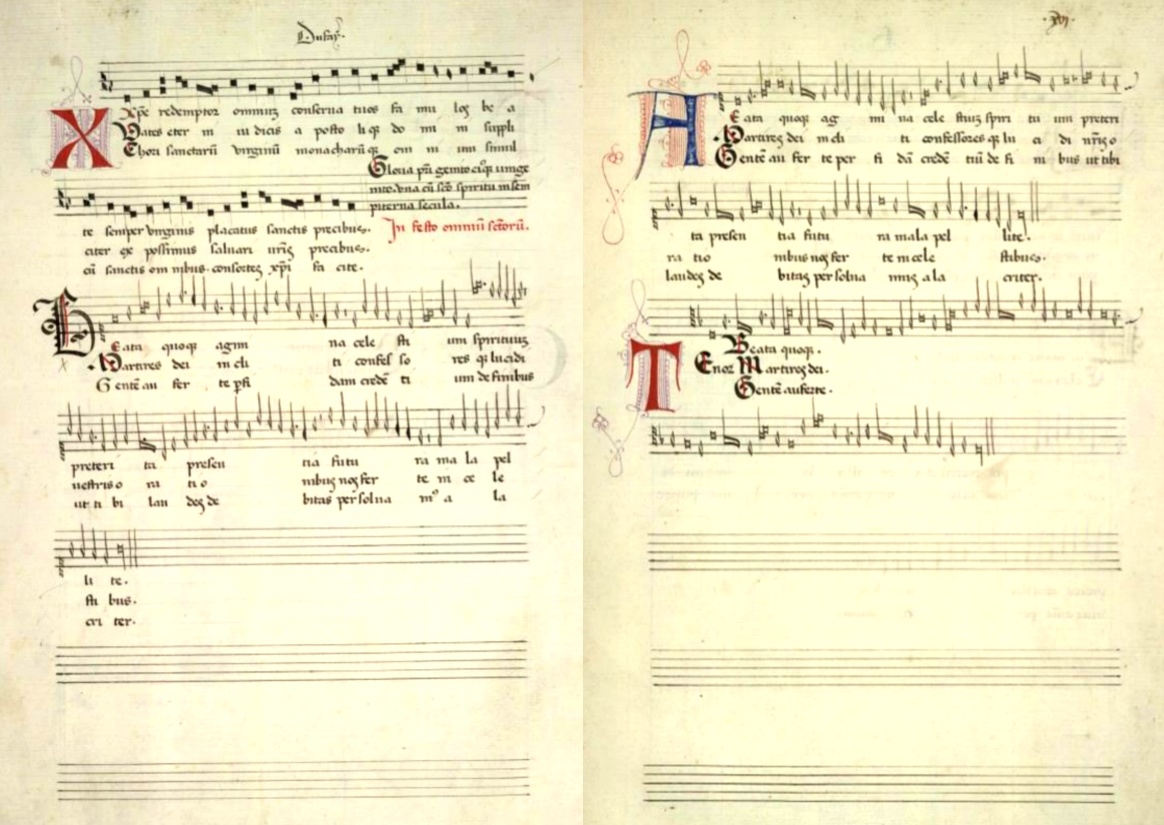 Dufaÿ.
Xp̄e redemptor omniuȝ conserua tuos fa mu los be a
Vates eter ni iu dicis a posto li qȝ do mi ni suppli
Chori sanctarū virginū monacharū qȝ om ni um simul
Gloria
mto. vna cū sc̄o spiritu. in sem
piterna secula.
te semper virginis placatus sanctis precibus.
In festo omniū sc̄torū.
citer ex possimus saluari ur̄is precibus.
cū sanctis om nibus consortes xp̄i fa cite.
B Eata quoqȝ agmi na cele sti um spirituuȝ
Martires dei in cli ti confes so res qȝ lucidi
Gentē au fer te pfi dam credē ti um de finibus
preteri ta presen tia futu ra ma la pel
nestris o ra ti o nibus nos fer te in ce le
ut ti bi lau des de bitas persolua mꝰ a la
li te.
sti bus.
cri ter.
xvi.
A Eata quoqȝ ag mi na cele stiuȝ spiri tu um preteri
Martires dei in cli ti confessores qȝ lu ci di nr̄is o
Gentē au fer te per fi dā credē tiū de fi ni bus ut tibi
ta presen tia futu ra mala pel lite.
ra tio nibus nos fer te in cele stibus.
laudes de bitas persolua mus a la criter.
Tenor Beata quoqȝ.
Martires dei.
Gentē auferte.